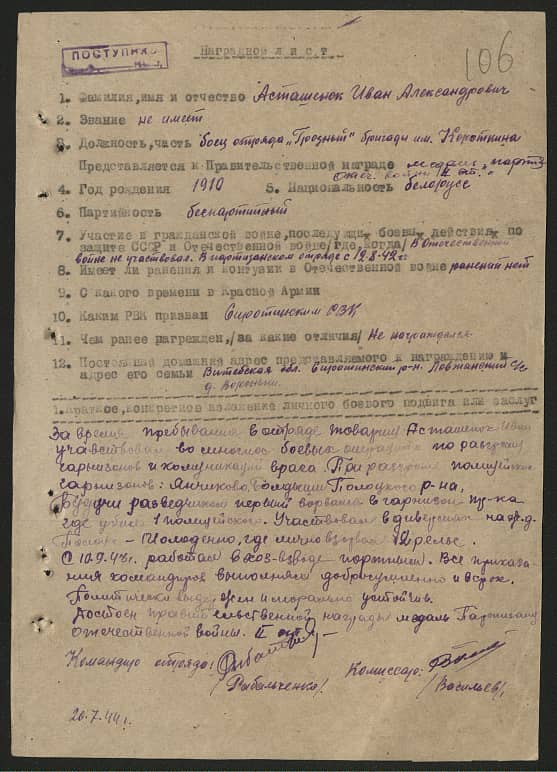 ПОСТУПИЛО
106
Наградной лист
1. Фамилия,имя и отчество Асташенок Иван Александрович
2. Звание не имеет
3. Должность,часть боец отряда „Грозный" бригады им. Короткина
Представляется к Правительственной награде медаль „партиз.
отеч. войны II ст."
4. Год рождения 1910 5. Национальность белорусс
6. Партийность беспартийный
7. Участие в гражданской войне,последующих боевых действиях по
защите СССР и Отечественной войне/где,когда/ В Отечественной
войне не участвовал. В партизанском отряде с 12.8.42 г.
8. Имеет ли ранения и контузии в Отечественной войне ранений нет
9. С какого времени в Красной Армии
10. Каким РВК призван Сиротинским РВК
11. Чем ранее награжден,/за какие отличия/ Не награждался
12. Постоянный домашний адрес представляемого к награждению и
адрес его семьи Витебская обл. Сиротинский р-н. Ловжанский с/с
д.
1.Краткое,конкретное изложение личного боевого подвига или заслуг
За время пребывания в отряде товарищ Асташенок Иван
участвовал во многих боевых операциях по разгрому
гарнизонов и коммуникаций врага. При разгроме полицейских
гарнизонов: Янчиково, Полоцкого р-на,
Будучи разведчиком первый ворвался в гарнизон пр-ка
где убил 1 полицейского. Участвовал в диверсиях на ж.д.
Полоцк – где лично взорвал рельс.
С 10.9.43г. работал в хоз-взводе портным. Все приказа-
ния командиров выполнял добросовестно и в срок.
Политически выдержен и морально устойчив.
Достоен правительственной награды медаль Партизану
отечественной войны. II ст.
Командир отряда:
/Рыбальченко/
Комиссар:
/Васильев/
20.7.44г.